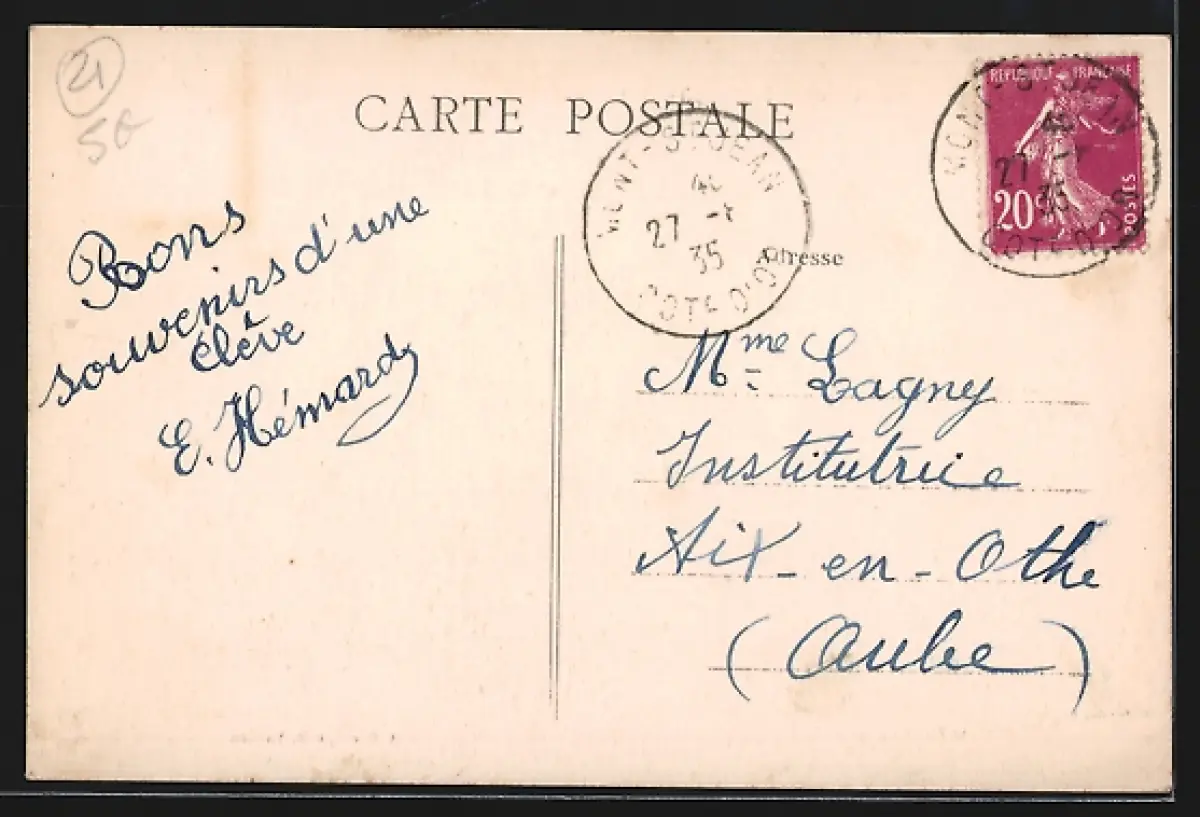 21
CARTE POSTALE
Bons
souvenirs d'une
élève
E. Hémard
MONT-ST-JEAN
27
35
COTE D'OR
REPUBLIQUE FRANÇAISE
20
POSTES
MONT-ST-JEAN
27
35
COTE D'OR
Adresse
Mme Lagny
Institutrice
Aix-en-Othe
(Aube)